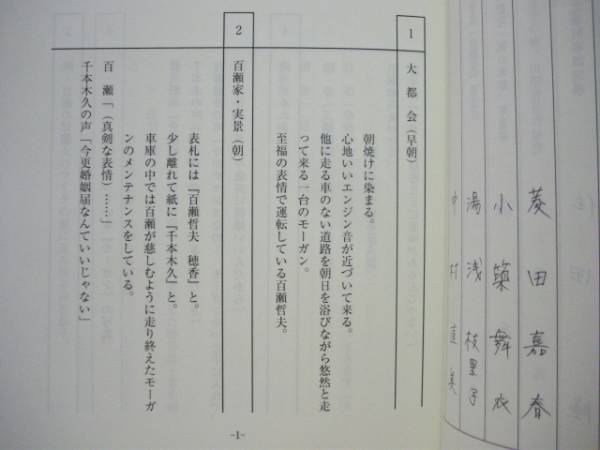 菱田嘉春
小築舞衣
湯浅枝里子
1
大都会(早朝)
朝焼けに染まる。
心地いいエンジン音が近づいて来る。
他に走る車のない道路を朝日を浴びながら悠然と走
って来る一台のモーガン。
至福の表情で運転している百瀬哲夫。
2
百瀬家・実景(朝)
表札には『百瀬哲夫 穂香』と。
少し離れて紙に『千本木久』と。
車庫の中では百瀬が慈しむように走り終えたモーガ
ンのメンテナンスをしている。
百瀬「(真剣な表情)……」
千本木久の声「今更婚姻届なんていいじゃない」
-1-